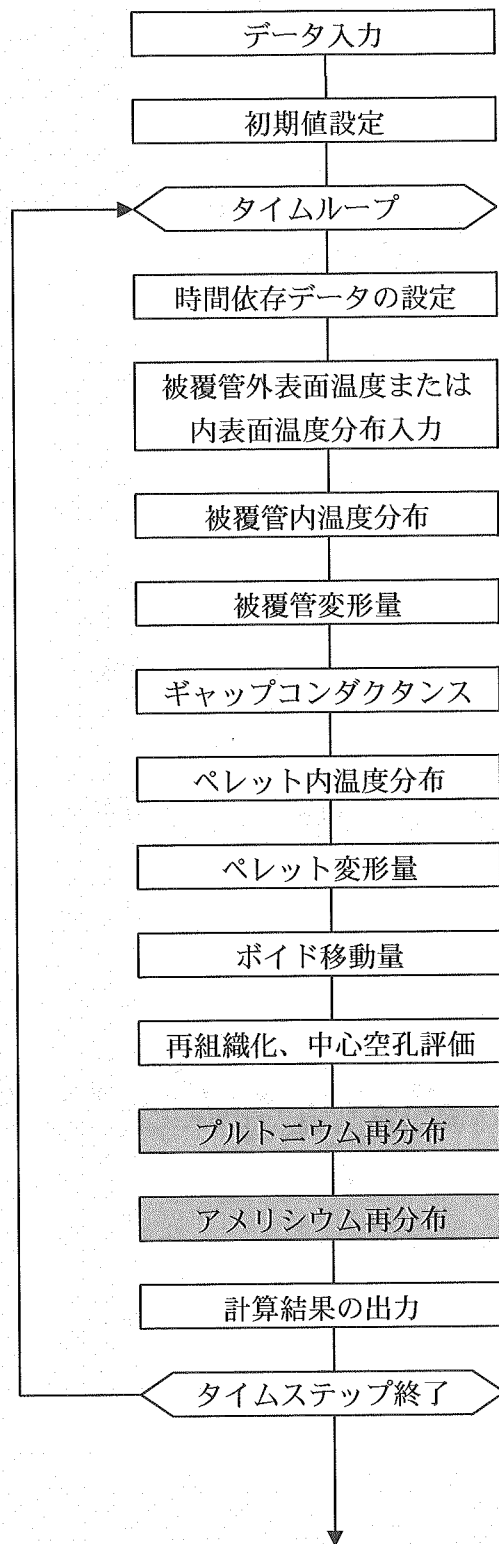 データ入力
初期値設定
タイムループ
時間依存データの設定
被覆管外表面温度または
内表面温度分布入力
被覆管内温度分布
被覆管変形量
ギャップコンダクタンス
ペレット内温度分布
ペレット変形量
ボイド移動量
再組織化、中心空孔評価
プルトニウム再分布
アメリシウム再分布
計算結果の出力
タイムステップ終了